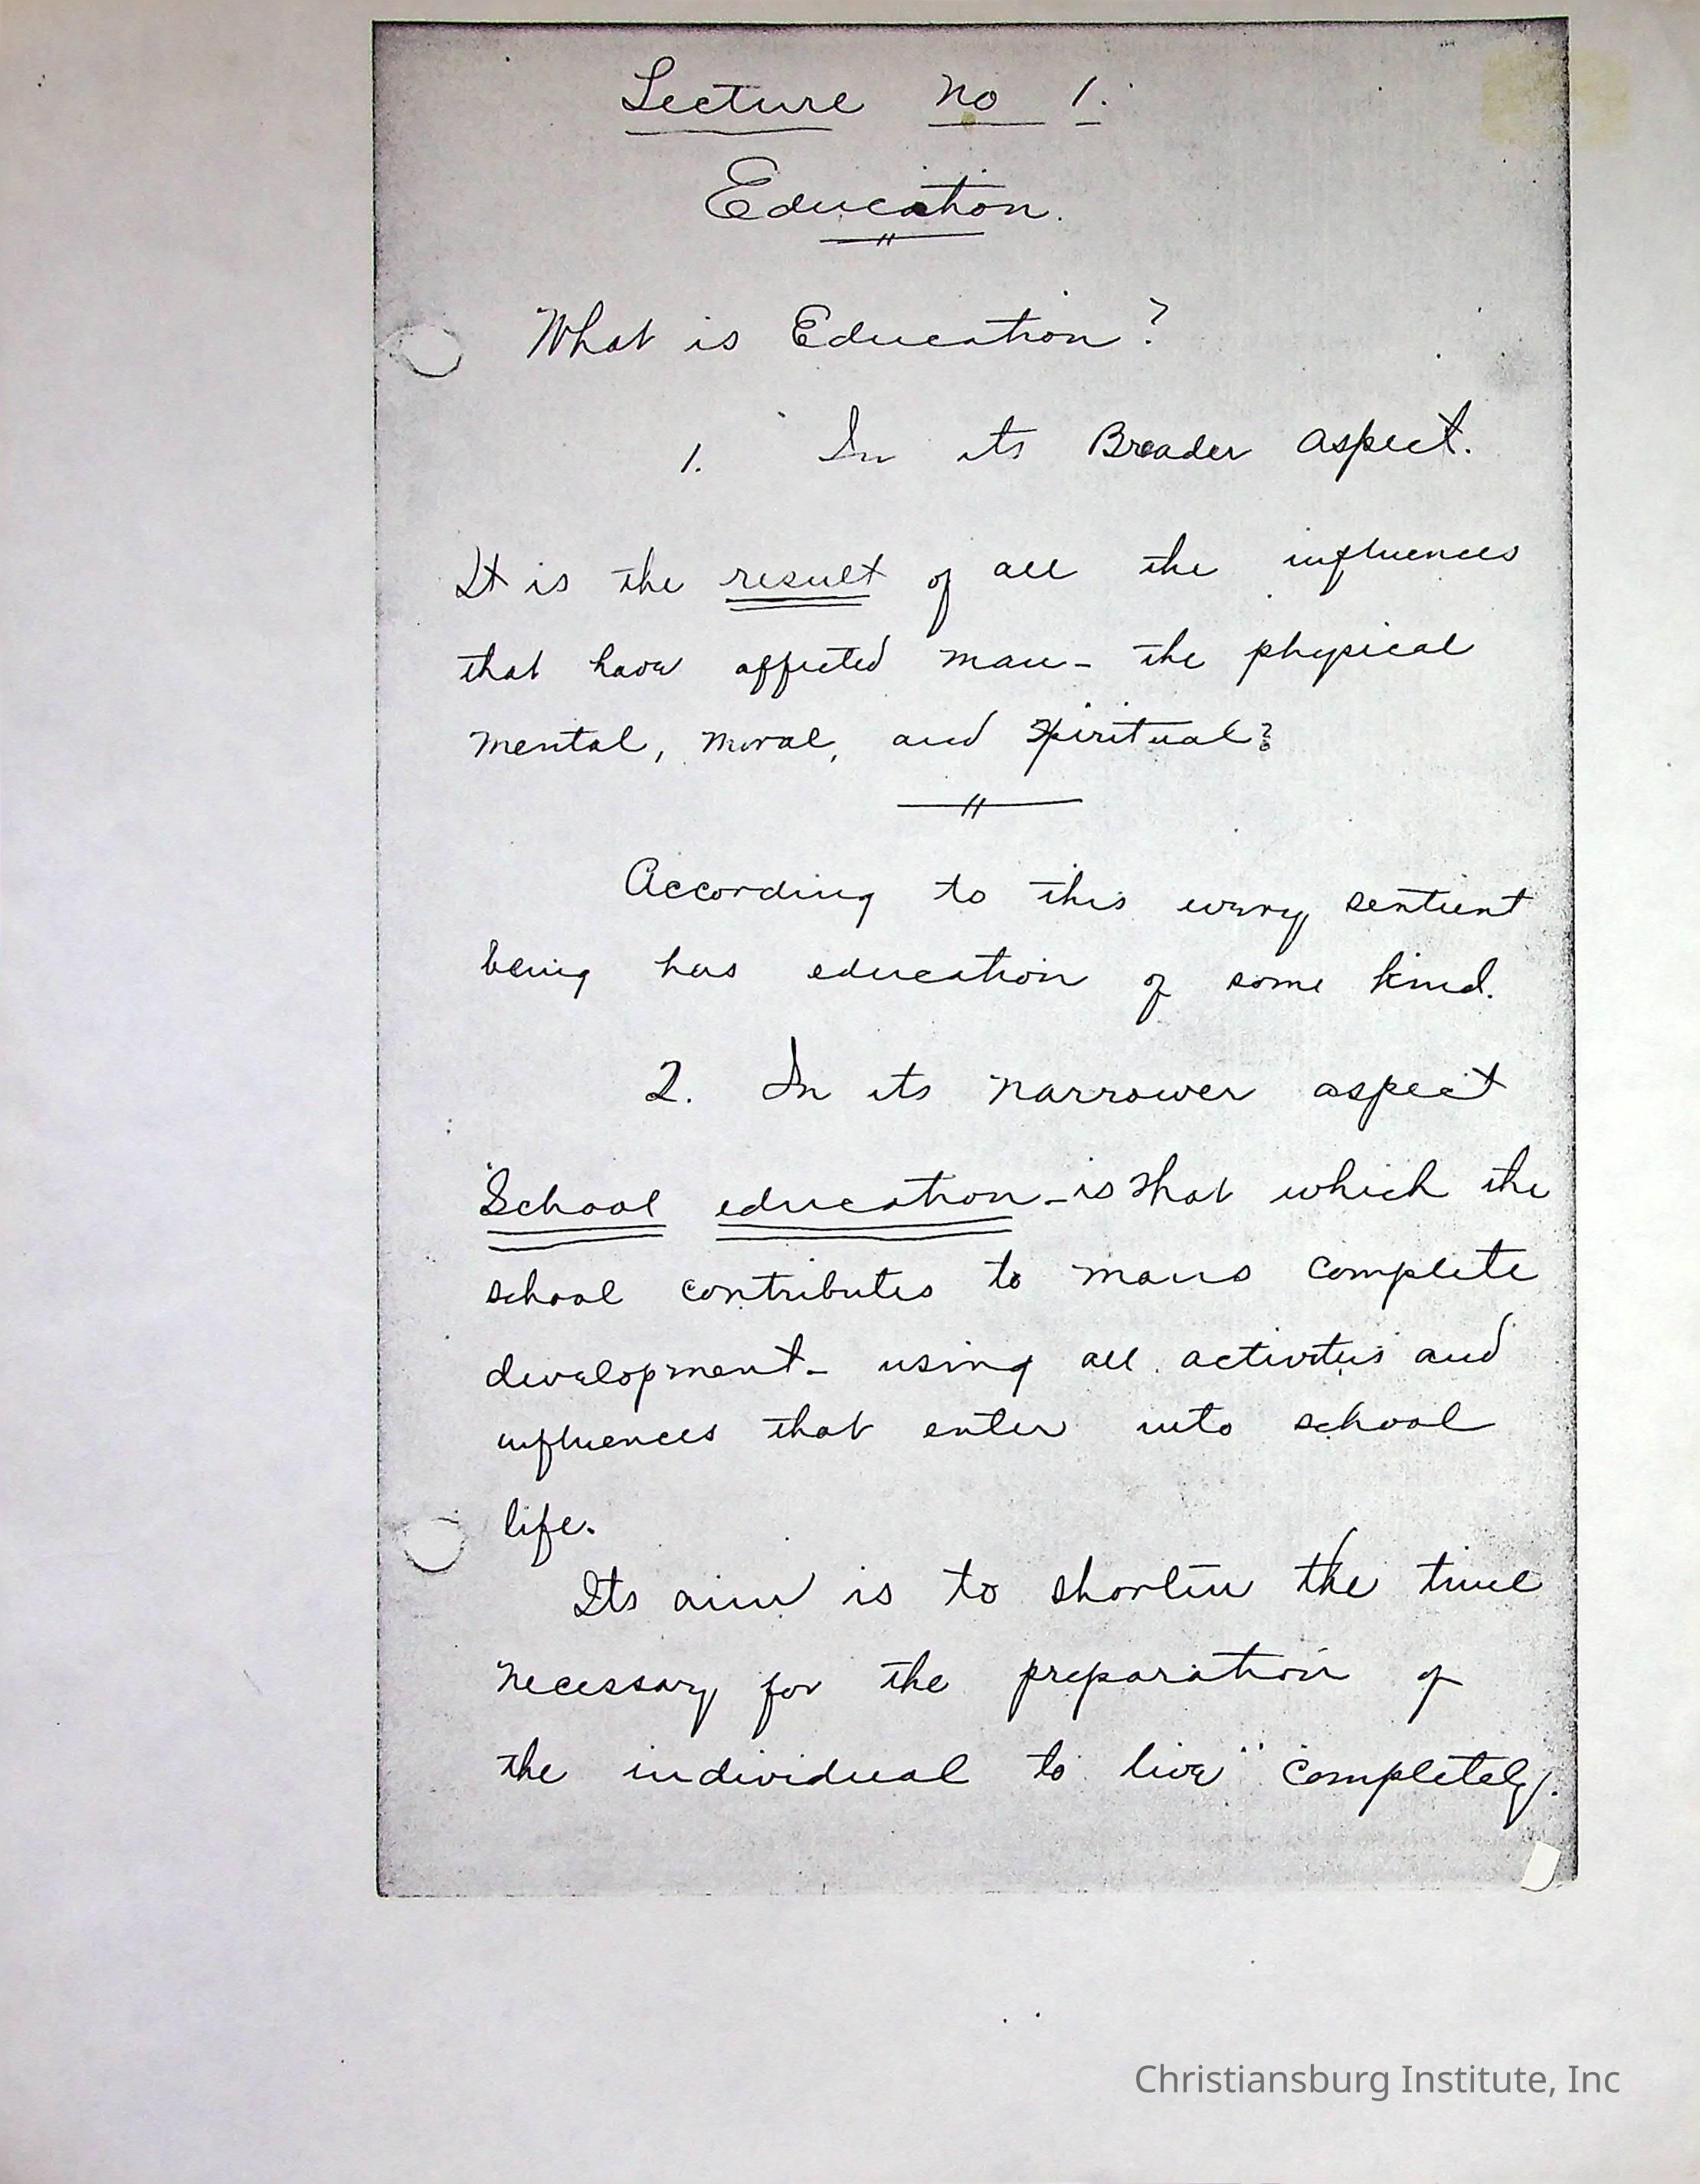 Lecture No 1.
Education.
What is Education?
1. In its Broader aspect.
It is the result of all the influences
that have affected man - the physical
mental, moral, and spiritual?
According to this every sentient
being has education of some kind.
2. In its narrower aspect
School education - is that which the
school contributes to mans complete
development - using all activities and
influences that enter into school
life.
Its aim is to shorten the time
necessary for the preparation of
the individual to live "completely.
Christiansburg Institute, Inc